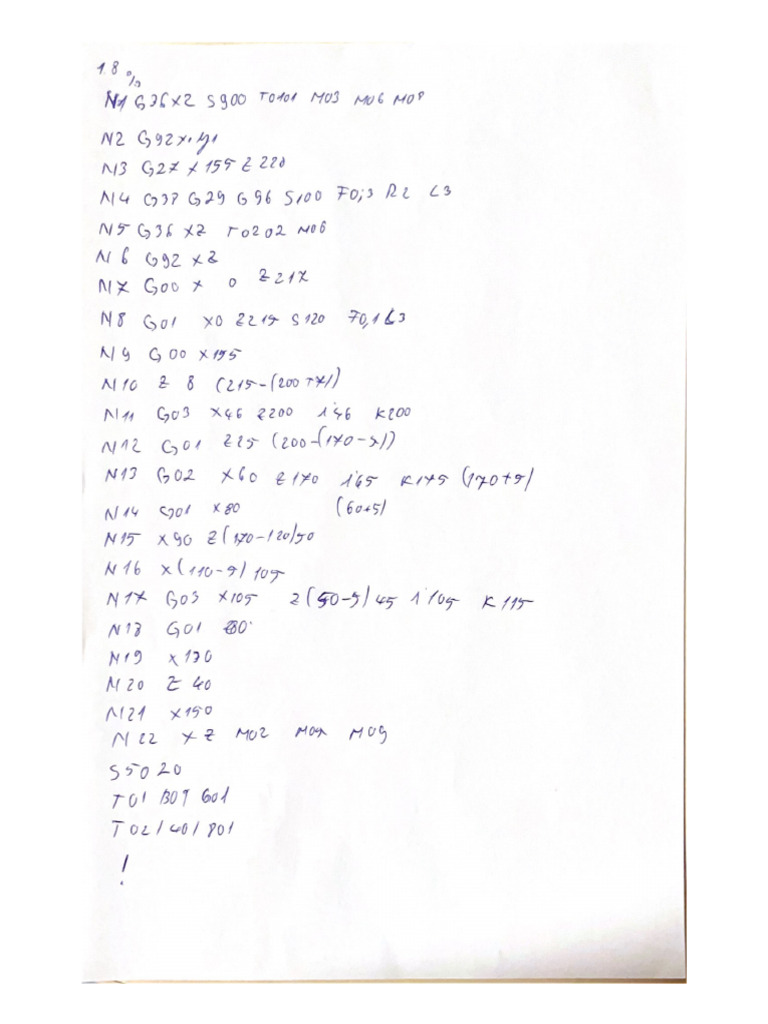 1.8 %
N1 G36 X Z S900 T0101 M03 M06 M08
N2 G92
N3 G27 X155 Z220
N4 G37 G29 G96 S100 F0,3 R2 L3
N5 G36 XZ T0202 M06
N6 G92 XZ
N7 G00 X 0 Z217
N8 G01 X0 Z215 S120 F0,1 L3
N9 G00 X195
N10 Z 8 (215-(200+7))
N11 G03 X46 Z200 i46 K200
N12 G01 Z25 (200-(170-5))
N13 G02 X60 Z170 i65 K175 (170+5)
N14 G01 X80 (60+5)
N15 X90 Z(170-120)50
N16 X(110-5) 105
N17 G03 X105 Z(50-5) 45 i105 K115
N18 G01
N19 X130
N20 Z 40
N21 X150
N22 X Z M02 M09
S5020
T01 B01 G01
T02/401801
!